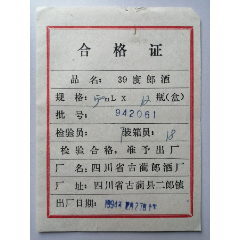 合格证
品名：39度郎酒
规格：50mL X 12瓶(盒)
批号：942061
检验员：1装箱员：18
检验合格，准予出厂
厂名：四川省古蔺郎酒厂
厂址：四川省古蔺县二郎镇
出厂日期：1994年